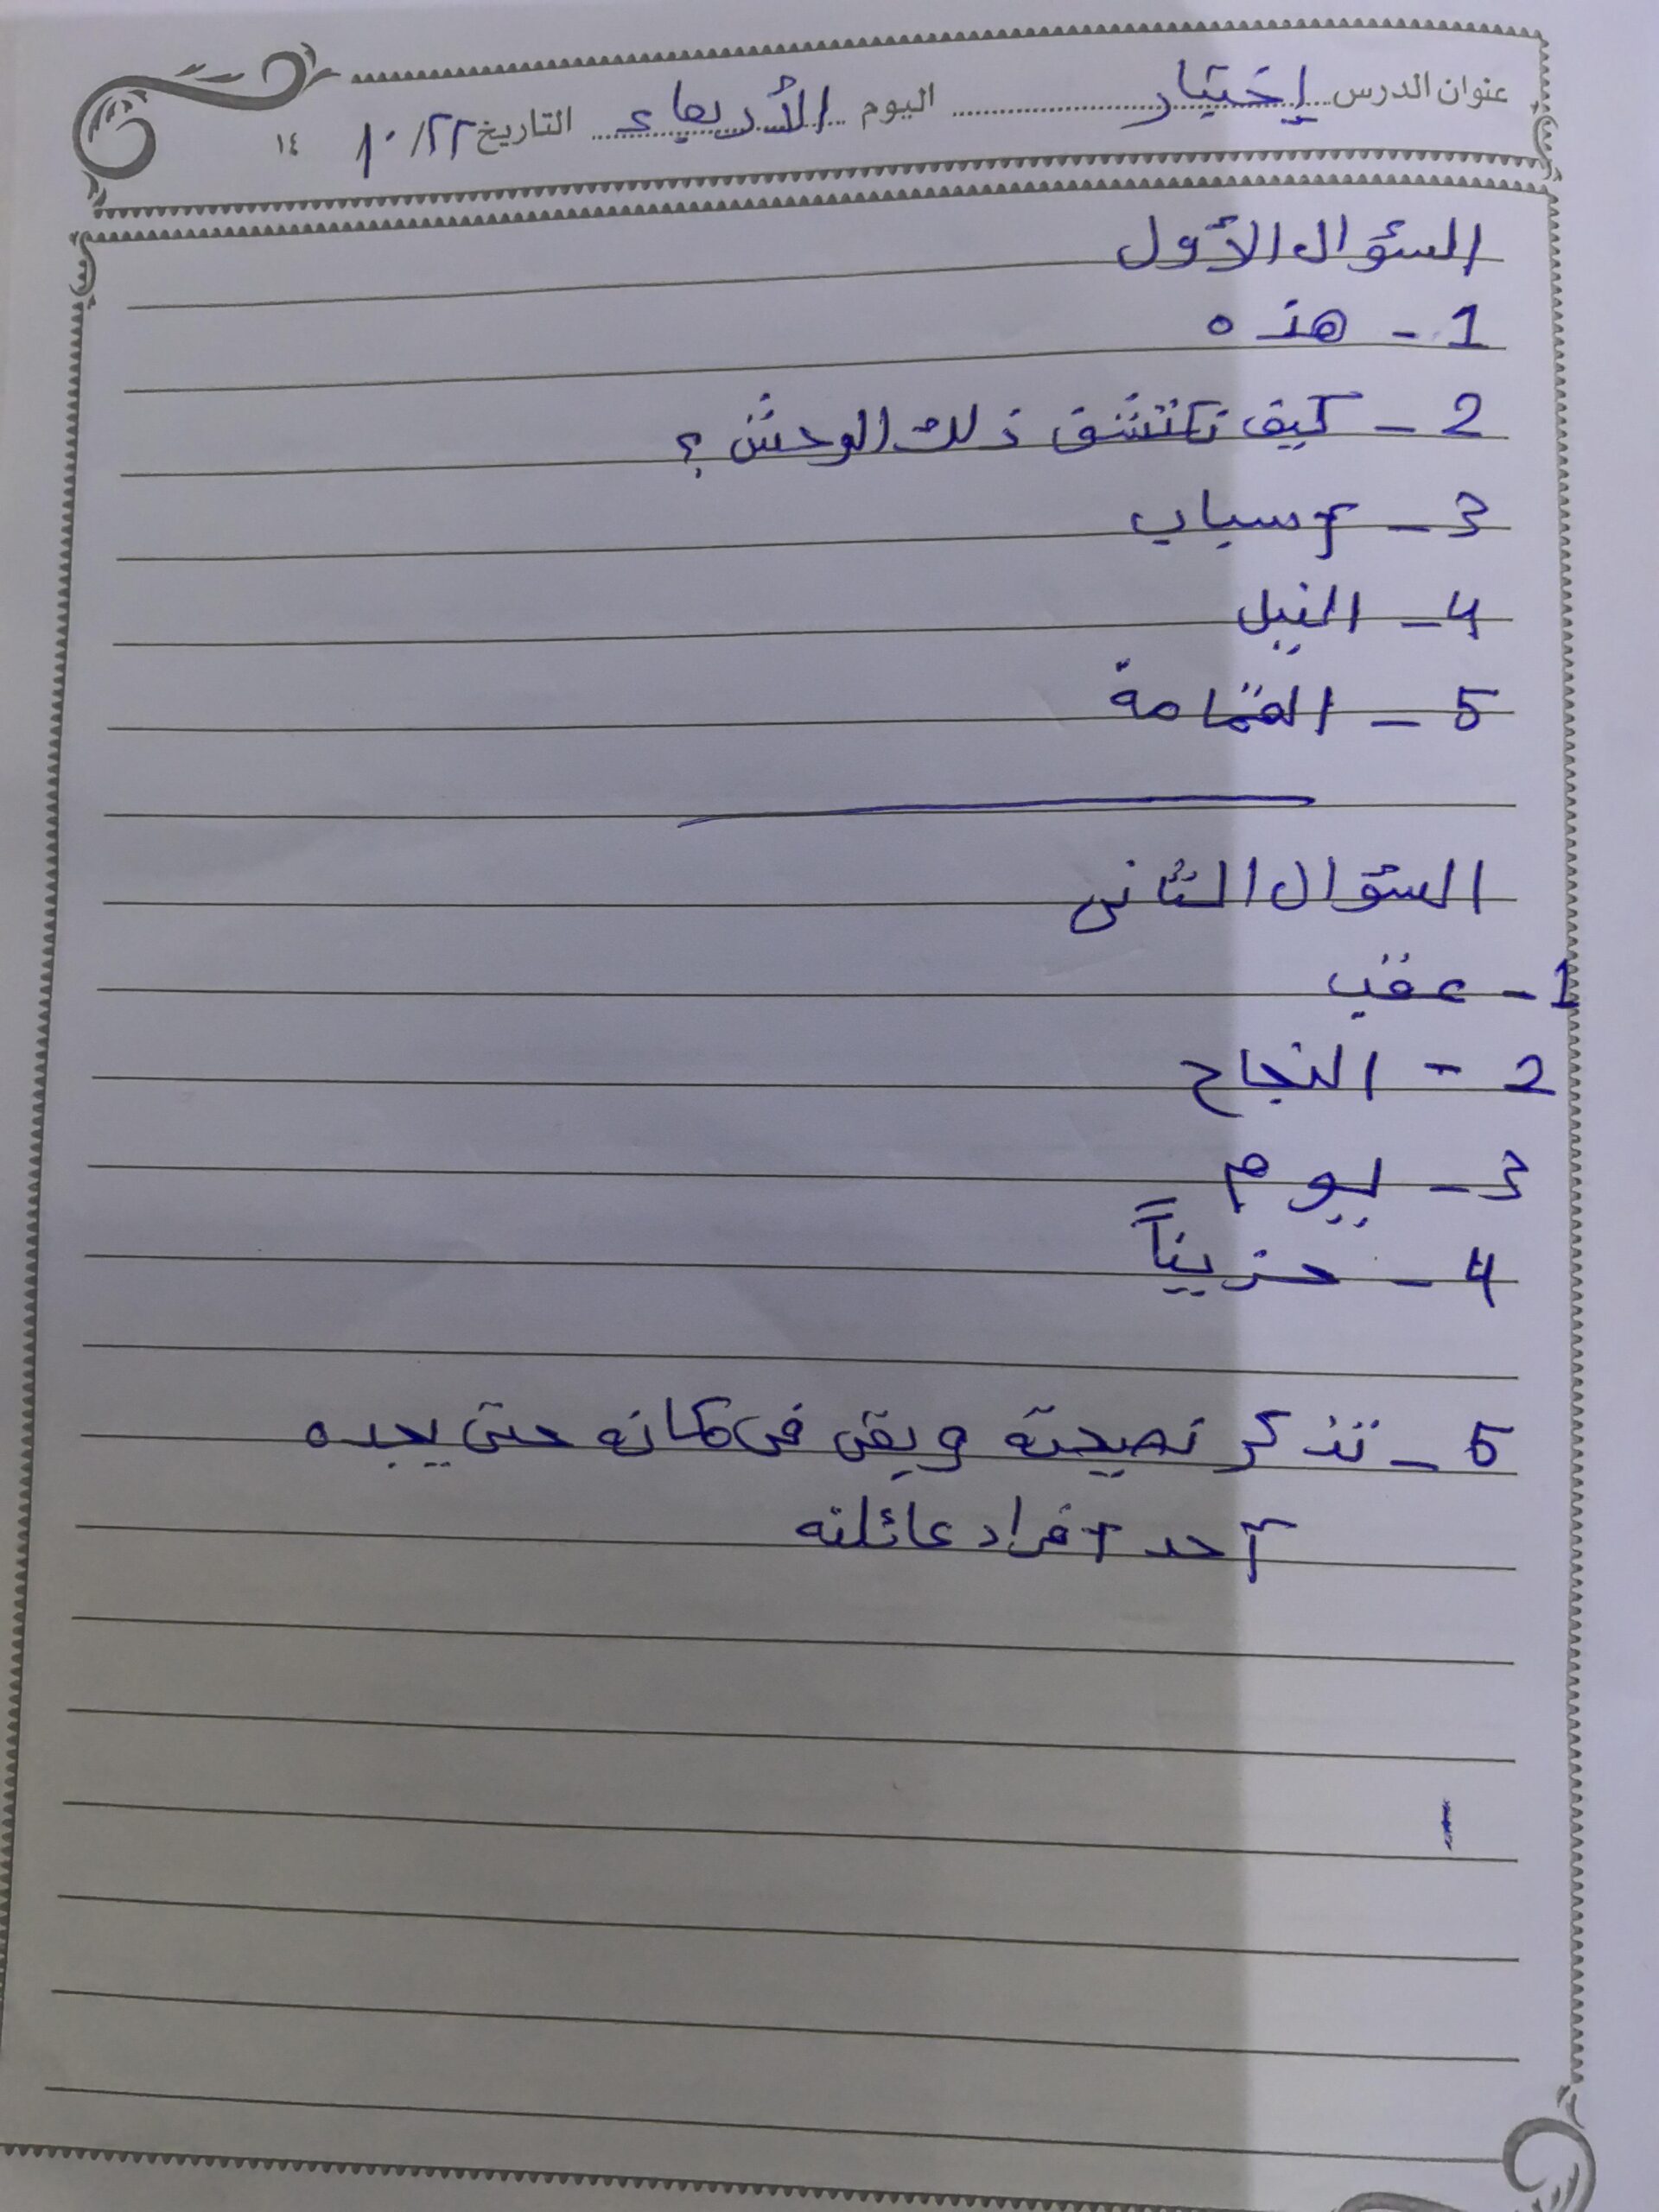 عنوان الدرس إختبار اليوم الأربعاء التاريخ ١٠/٢٢ ١٤
السؤال الأول
1 - هذه
2 - كيف نكتشف ذلك الوحش ؟
3 - أسباب
4 - النيل
5 - القمامة
السؤال الثانى
1 - عقب
2 - النجاح
3 - يوم
4 - حزيناً
5 - تذكر نصيحته و بقى فى مكانه حتى يجده
أحد أفراد عائلته